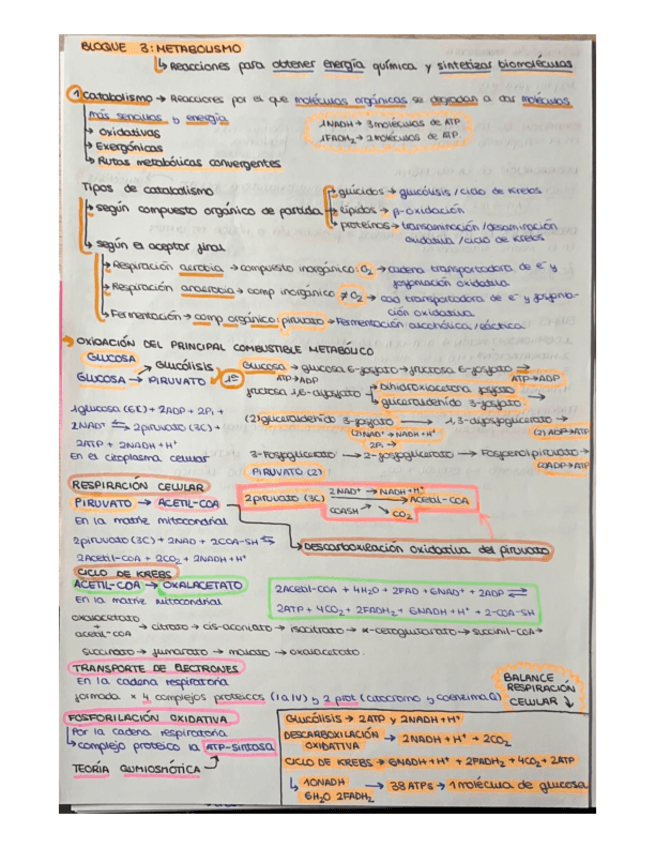 BLOQUE 3: METABOLISMO
↳ Reacciones para obtener energía química y sintetizar biomoléculas
1 Catabolismo → Reacciones por el que moléculas orgánicas se degradan a dos moléculas
más sencillas y energía
1NADH → 3 moléculas de ATP
1FADH₂ → 2 moléculas de ATP
→ Oxidativas
→ Exergónicas
↳ Rutas metabólicas convergentes
Tipos de catabolismo
→ según compuesto orgánico de partida
→ glúcidos → glucólisis / ciclo de Krebs
→ lípidos → β-oxidación
→ proteínas → transaminación / desaminación
oxidativa / ciclo de Krebs
→ según el aceptor final
→ Respiración aerobia → compuesto inorgánico: O₂ → cadena transportadora de e⁻ y
fosforilación oxidativa
→ Respiración anaerobia → comp inorgánico ≠ O₂ → cad transportadora de e⁻ y fosforila-
ción oxidativa
↳ Fermentación → comp orgánico: piruvato → Fermentación alcohólica / láctica
→ OXIDACIÓN DEL PRINCIPAL COMBUSTIBLE METABÓLICO
GLUCOSA
→ Glucólisis
GLUCOSA → PIRUVATO
1º
Glucosa → glucosa 6-fosfato → fructosa 6-fosfato →
ATP→ADP
ATP→ADP
fructosa 1,6-difosfato
→ Dihidroxiacetona fosfato
→ gliceraldehído 3-fosfato →
1glucosa (6C) + 2ADP + 2Pi +
2NAD⁺ ⇆ 2piruvato (3C) +
2ATP + 2NADH + H⁺
En el citoplasma celular
(2) gliceraldehído 3-fosfato → 1,3-difosfoglicerato →
(2) NAD⁺ → NADH + H⁺
2Pi →
(2) ADP→ATP
3-Fosfoglicerato → 2-fosfoglicerato → Fosfoenolpiruvato →
(2) ADP→ATP
PIRUVATO (2)
RESPIRACIÓN CELULAR
PIRUVATO → ACETIL-COA
En la matriz mitocondrial
2piruvato (3C) + 2NAD + 2COA-SH ⇆
2Acetil-COA + 2CO₂ + 2NADH + H⁺
2piruvato (3C) 2NAD⁺ → NADH + H⁺ → Acetil-COA
COASH
CO₂
→ Descarboxilación oxidativa del piruvato
CICLO DE KREBS
ACETIL-COA → OXALACETATO
En la matriz mitocondrial
2Acetil-COA + 4H₂O + 2FAD + 6NAD⁺ + 2ADP ⇆
2ATP + 4CO₂ + 2FADH₂ + 6NADH + H⁺ + 2-COA-SH
oxalacetato
+
acetil-COA
→ citrato → cis-aconitato → isocitrato → α-cetoglutarato → succinil-COA →
succinato → fumarato → malato → oxalacetato.
TRANSPORTE DE ELECTRONES
En la cadena respiratoria
formada x 4 complejos proteicos (I a IV) y 2 prot (citocromo y coenzima Q)
BALANCE
RESPIRACIÓN
CELULAR ↓
FOSFORILACIÓN OXIDATIVA
Por la cadena respiratoria
↳ complejo proteico la ATP-sintasa
TEORÍA QUIMIOSMÓTICA
Glucólisis → 2ATP y 2NADH + H⁺
DESCARBOXILACIÓN
OXIDATIVA
→ 2NADH + H⁺ + 2CO₂
CICLO DE KREBS → 6NADH + H⁺ + 2FADH₂ + 4CO₂ + 2ATP
↳ 10NADH
6H₂O 2FADH₂
→ 38 ATPs → 1 molécula de glucosa